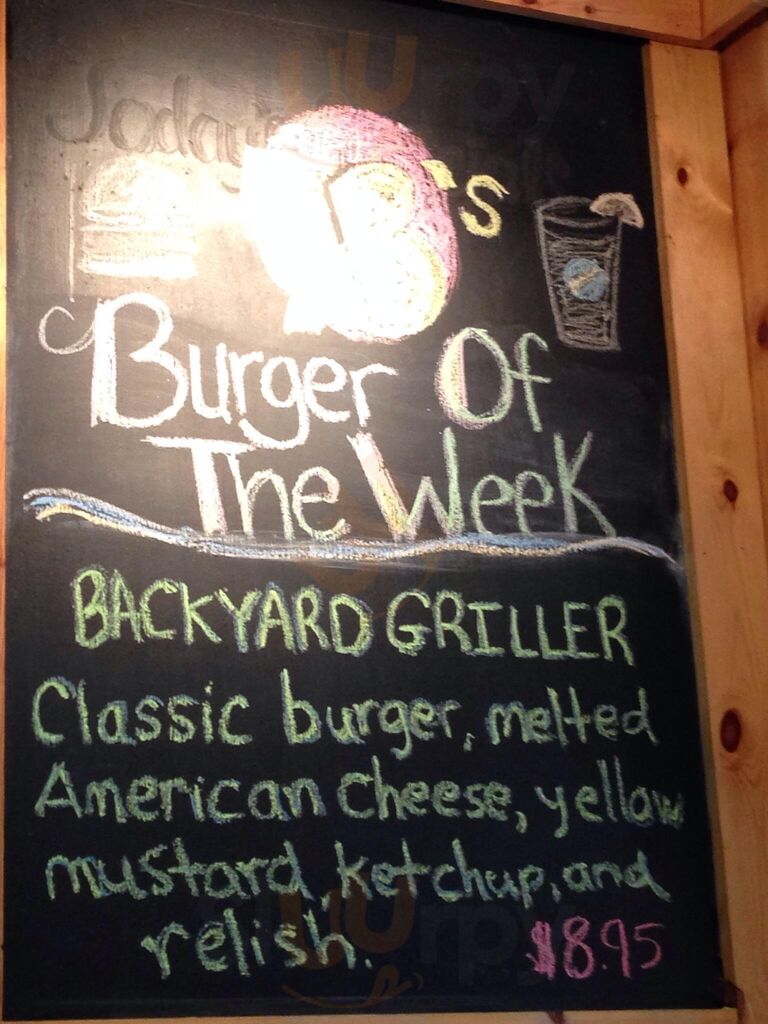 Today
B's
Burger Of
The Week
BACKYARD GRILLER
Classic burger, melted
American cheese, yellow
mustard, ketchup, and
relish. $8.95